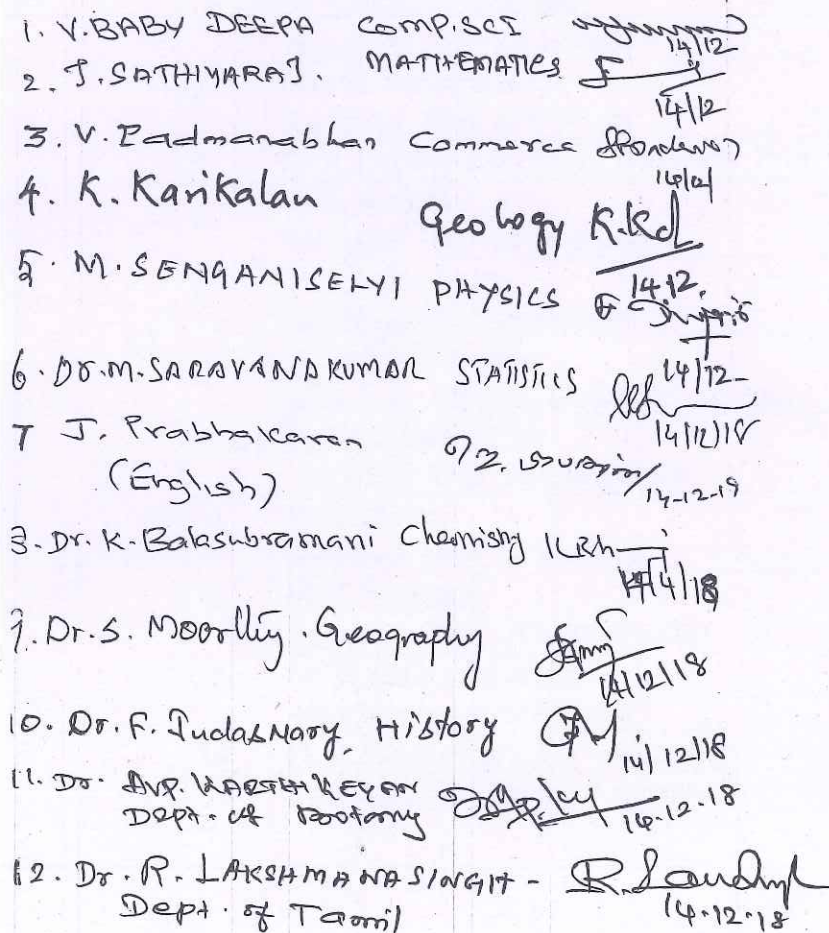 1. V.BABY DEEPA COMP.SCI
14/12
2. J.SATHIYARAJ. MATHEMATICS
14/12
3. V. Padmanabhan Commerce
4. K. Karikalan
Geology K.Kal
14.12.
5. M. SENGANISELVI PHYSICS
14/12
6. Dr.M.SARAVANAKUMAR STATISTICS
14/12/18
7 J. Prabhakaran
(English)
14-12-18
8. Dr. K. Balasubramani Chemistry
14/18
9. Dr. S. Moorthy. Geography
14/12/18
10. Dr. F. JudasMary, History
14/12/18
11. Dr. AVP. KARTHIKEYAN
Dept. of Botany
14.12.18
12. Dr. R. LAKSHMANASINGH - R.
Dept. of Tamil
14.12.18